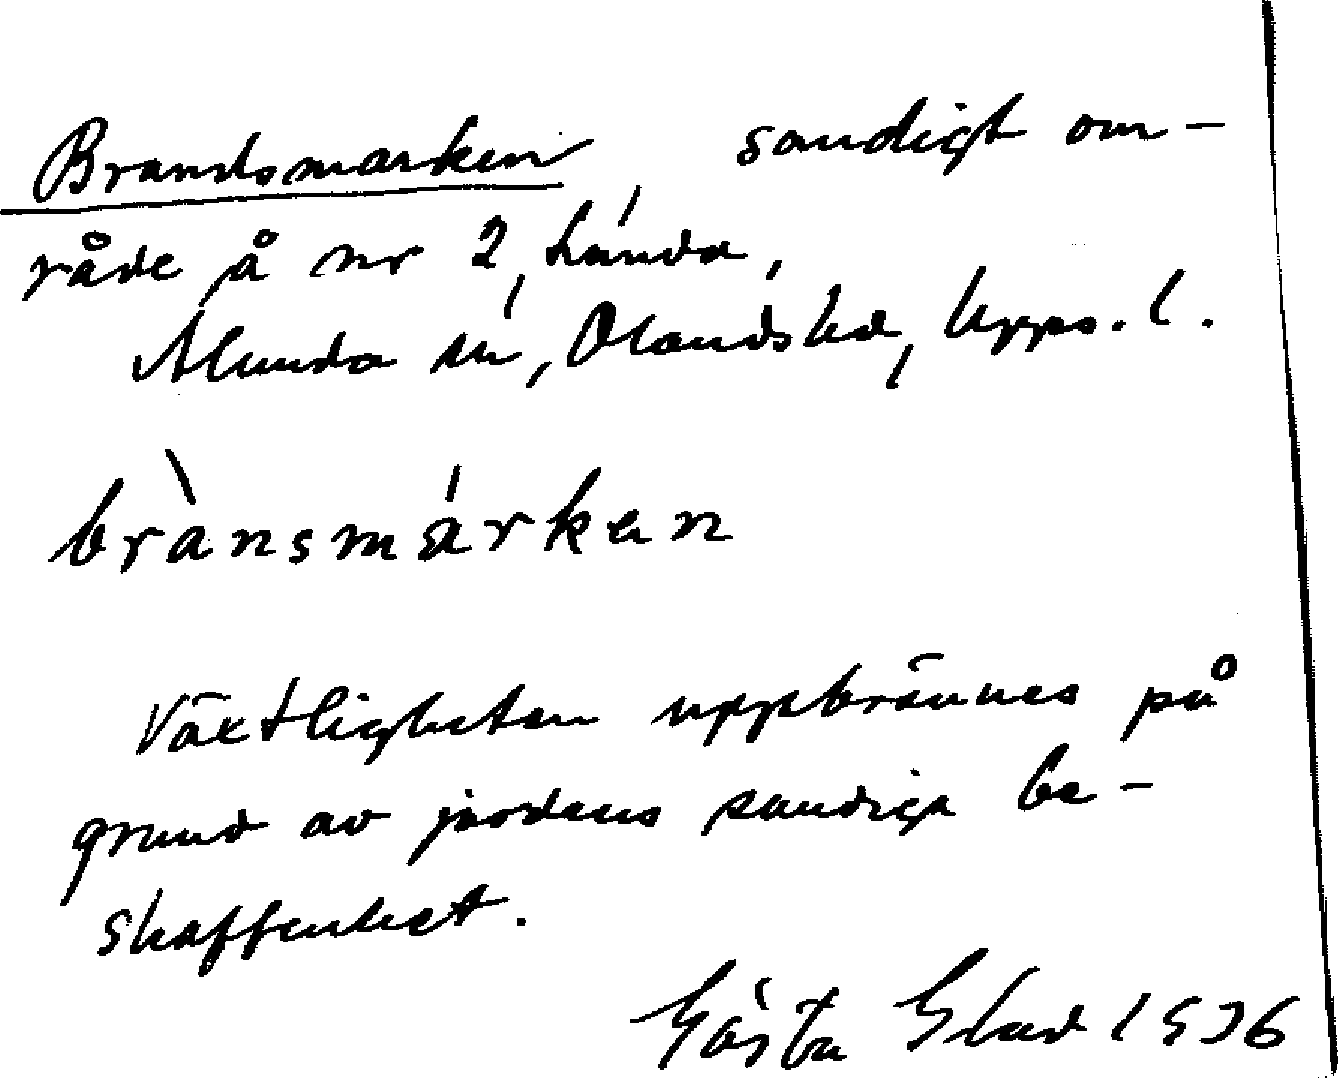 Brandsmarken, sandigt om-
råde å nr 2, Lunda,
Alunda sn, Olands hd, Upps. l.
brànsmárkan
Växtligheten uppbrännes på
grund av jordens sandiga be-
skaffenhet.
Gösta 1936